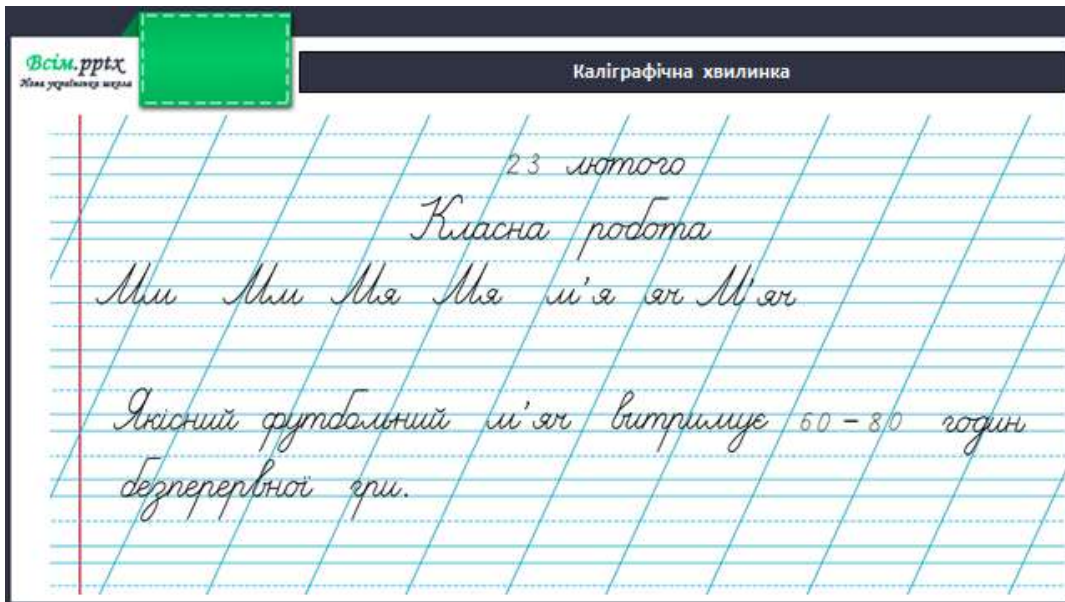 Всім.pptx
Нова українська школа
Каліграфічна хвилинка
23 лютого
Класна робота
Мм Мм Мя Мя м'я яч М'яч
Якісний футбольний м'яч витримує 60 – 80 годин
безперервної гри.